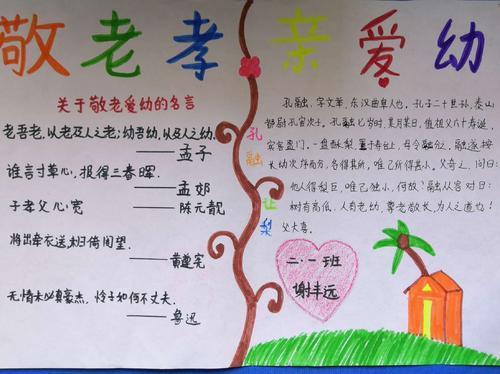 敬老孝亲爱幼
关于敬老爱幼的名言
老吾老,以及人之老;幼吾幼,以及人之幼.
——孟子
谁言寸草心,报得三春晖.
——孟郊
子孝父心宽
——陈元靓
将出牵衣送,未归倚闾望.
——黄遵宪
无情未必真豪杰,怜子如何不丈夫.
——鲁迅
孔融让梨
孔融,字文举,东汉曲阜人也.孔子二十世孙,泰山
都尉孔宙次子.孔融七岁时,某月某日,值祖父六十寿诞,
宾客盈门.一盘酥梨,置于寿台上,母令融分之.融遂按
长幼次序而分,各得其所,唯己所得甚小.父奇之,问曰:
他人得梨巨,唯己独小,何故?融从容对曰:
树有高低,人有老幼,尊老敬长,为人之道也!
父大喜.
二.一班
谢丰远